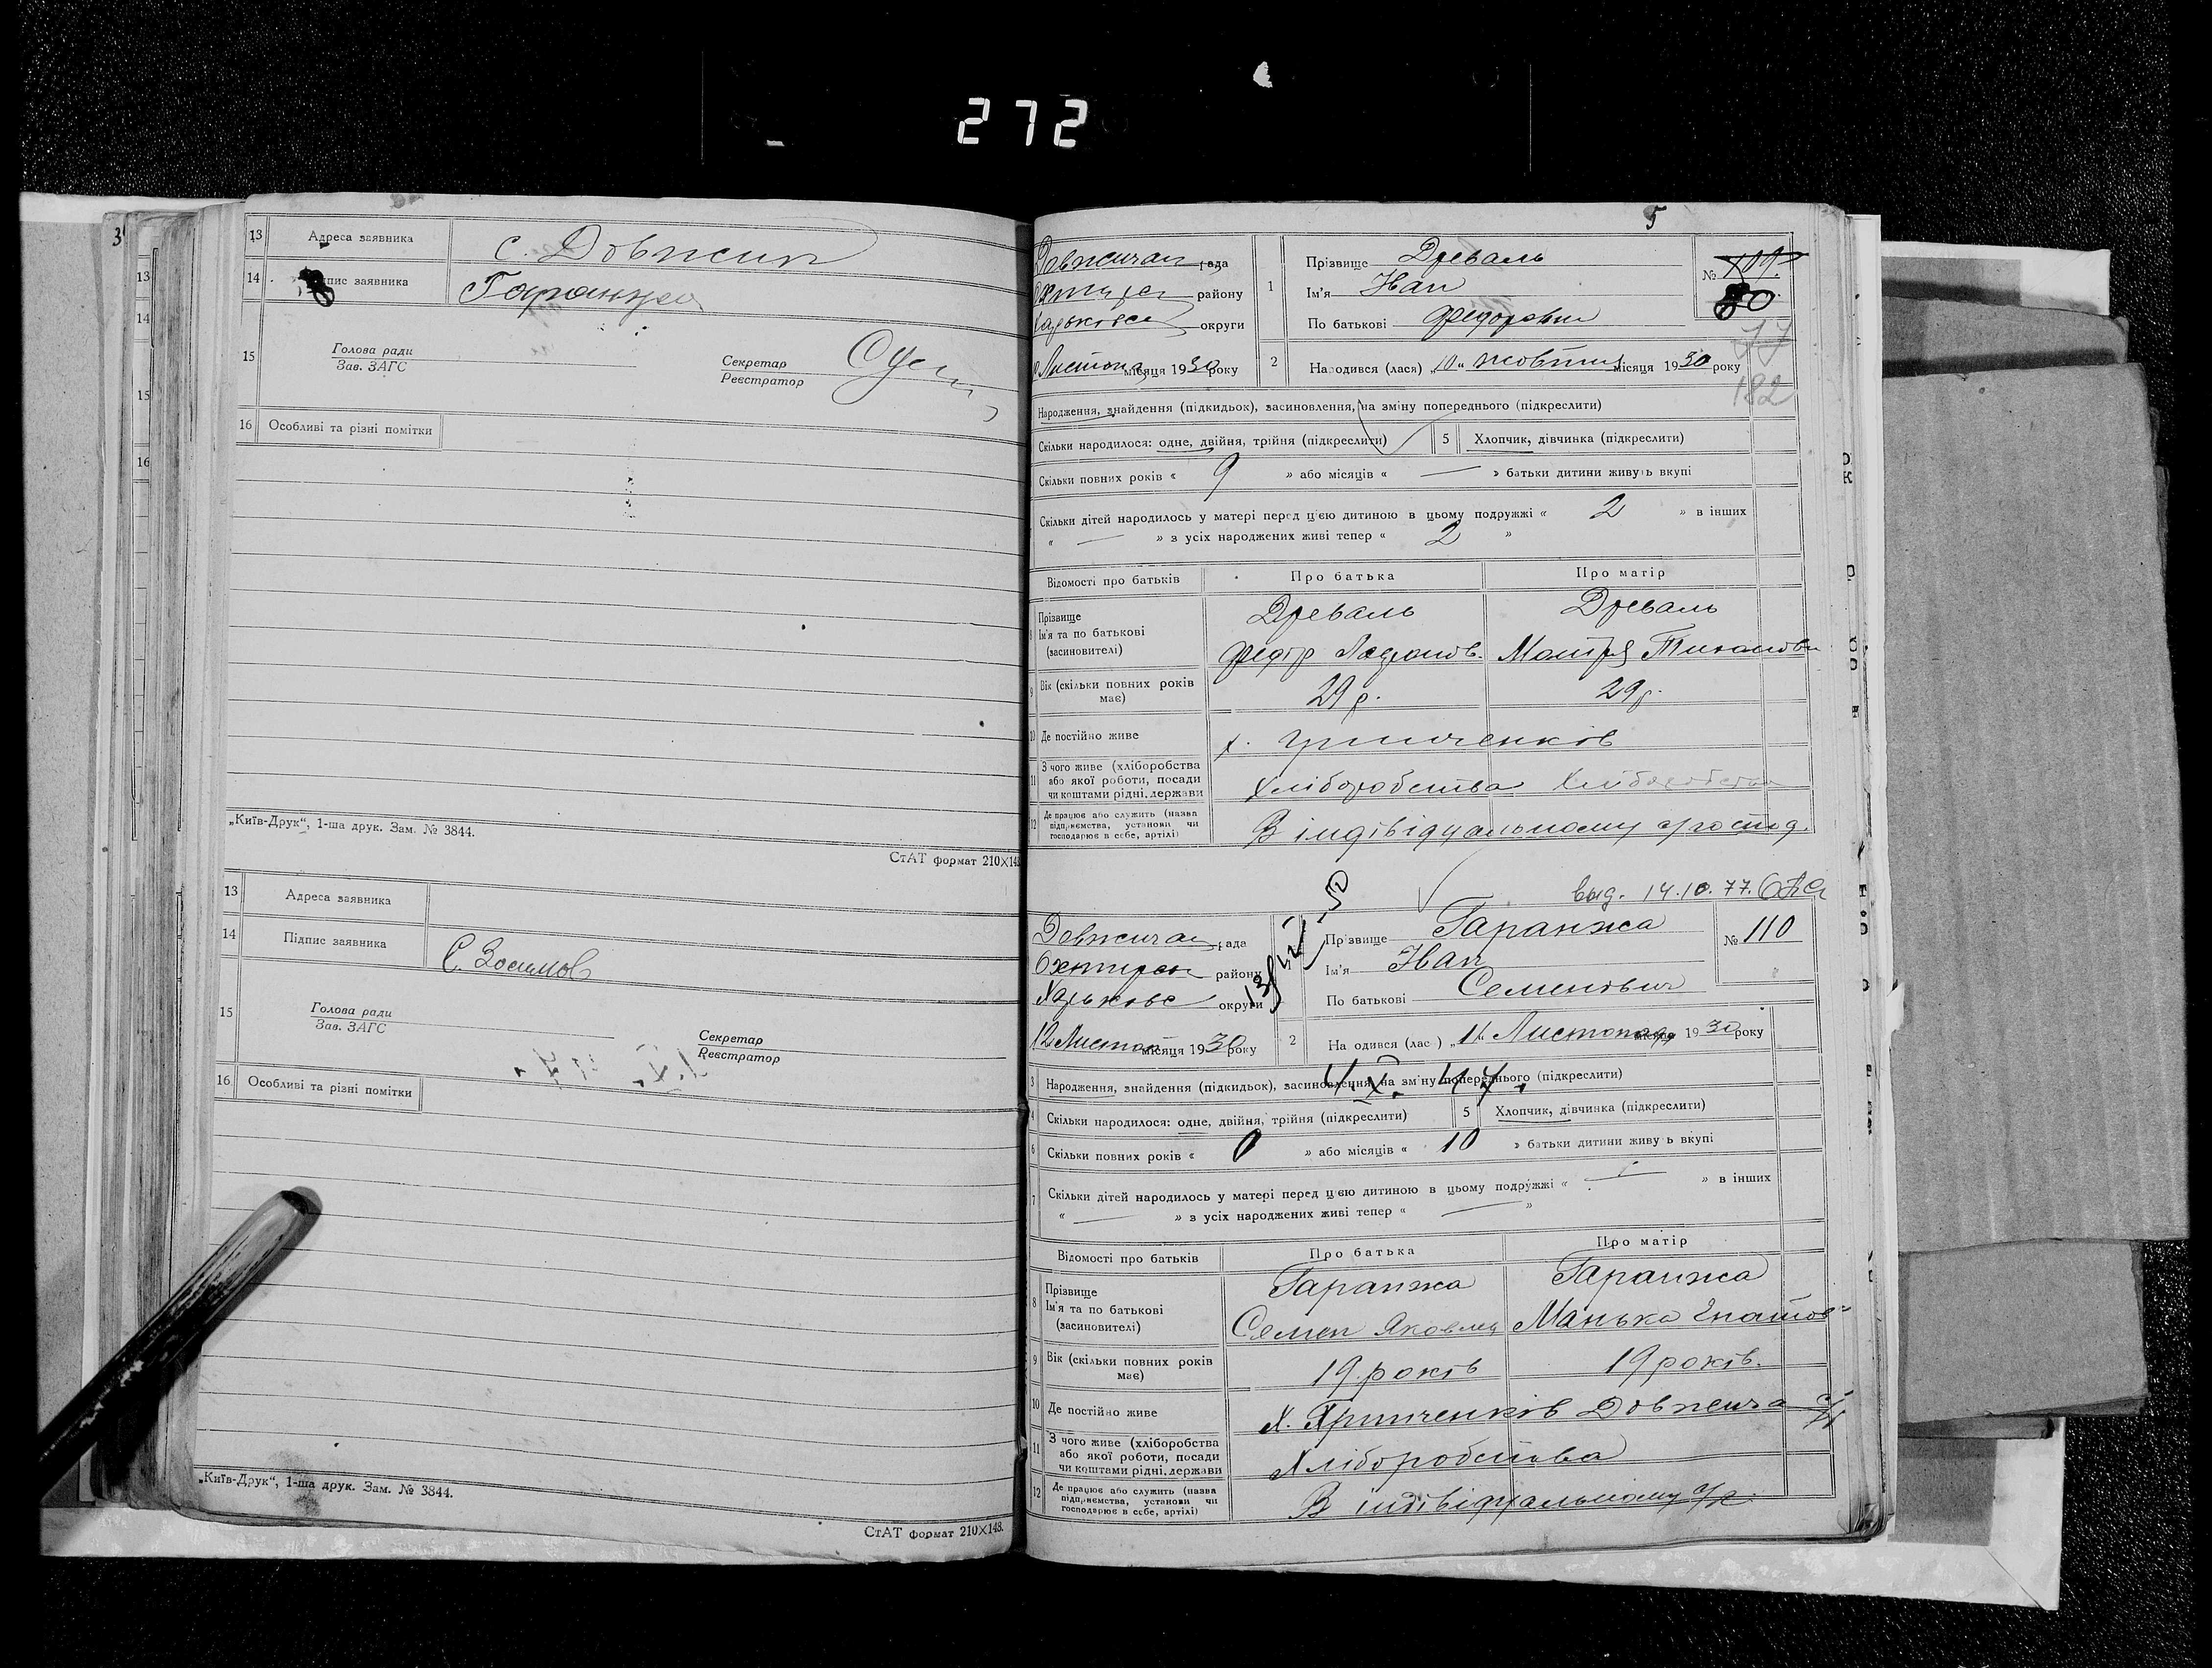 272
3
13 Адреса заявника с. Довжик
14 пис заявника Гаранжа
15 Голова ради
Зав. ЗАГС
Секретар
Реєстратор
16 Особливі та різні помітки
„Київ-Друк“, 1-ша друк. Зам. № 3844.
СтАТ формат 210X148
13 Адреса заявника
14 Підпис заявника С. Зосимов
15 Голова ради
Зав. ЗАГС
Секретар
Реєстратор
16 Особливі та різні помітки
„Київ-Друк“, 1-ша друк. Зам. № 3844.
СтАТ формат 210X148.
5
Довжичан рада
району
округи
Листопа місяця 1930 року
1 Прізвище Древаль
Ім'я Иван
По батькові Федорович
№ 109
80
77
182
2 Народився (лася) „10“ жовтня місяця 1930 року
Народження, знайдення (підкидьок), засиновлення, на зміну попереднього (підкреслити)
Скільки народилося: одне, двійня, трійня (підкреслити) 5 Хлопчик, дівчинка (підкреслити)
Скільки повних років « 9 » або місяців « — » батьки дитини живуть вкупі
Скільки дітей народилось у матері перед цією дитиною в цьому подружжі « 2 » в інших
« — » з усіх народжених живі тепер « 2 »
Відомості про батьків Про батька Про матір
8 Прізвище Древаль Древаль
Ім'я та по батькові
(засиновителі) Федір Мотря
9 Вік (скільки повних років
має) 29 р. 29 р.
10 Де постійно живе х. Гринченків
11 З чого живе (хліборобства
або якої роботи, посади
чи коштами рідні, держави Хліборобства Хліборобства
12 Де працює або служить (назва
підприємства, установи чи
господарює в себе, артілі) В індівідуальному господ.
выд. 14.10.77.
Довжичан рада
Охтирськ району
Харьковс округи
12 Листоп місяця 1930 року
Прізвище Гаранжа
Ім'я Иван
По батькові Семенович
№ 110
2 Народився (лася) „11“ Листопада місяця 1930 року
3 Народження, знайдення (підкидьок), засиновлення, на зміну попереднього (підкреслити)
4.X. 47.
4 Скільки народилося: одне, двійня, трійня (підкреслити) 5 Хлопчик, дівчинка (підкреслити)
6 Скільки повних років « 0 » або місяців « 10 » батьки дитини живуть вкупі
7 Скільки дітей народилось у матері перед цією дитиною в цьому подружжі « — » в інших
« — » з усіх народжених живі тепер « — »
Відомості про батьків Про батька Про матір
8 Прізвище Гаранжа Гаранжа
Ім'я та по батькові
(засиновителі) Семен Яковлев Манька Гнатов
9 Вік (скільки повних років
має) 19 років 19 років.
10 Де постійно живе Х. Гринченків Довжича с/р
11 З чого живе (хліборобства
або якої роботи, посади
чи коштами рідні, держави Хліборобства
12 Де працює або служить (назва
підприємства, установи чи
господарює в себе, артілі) В індівідуальному с/г.